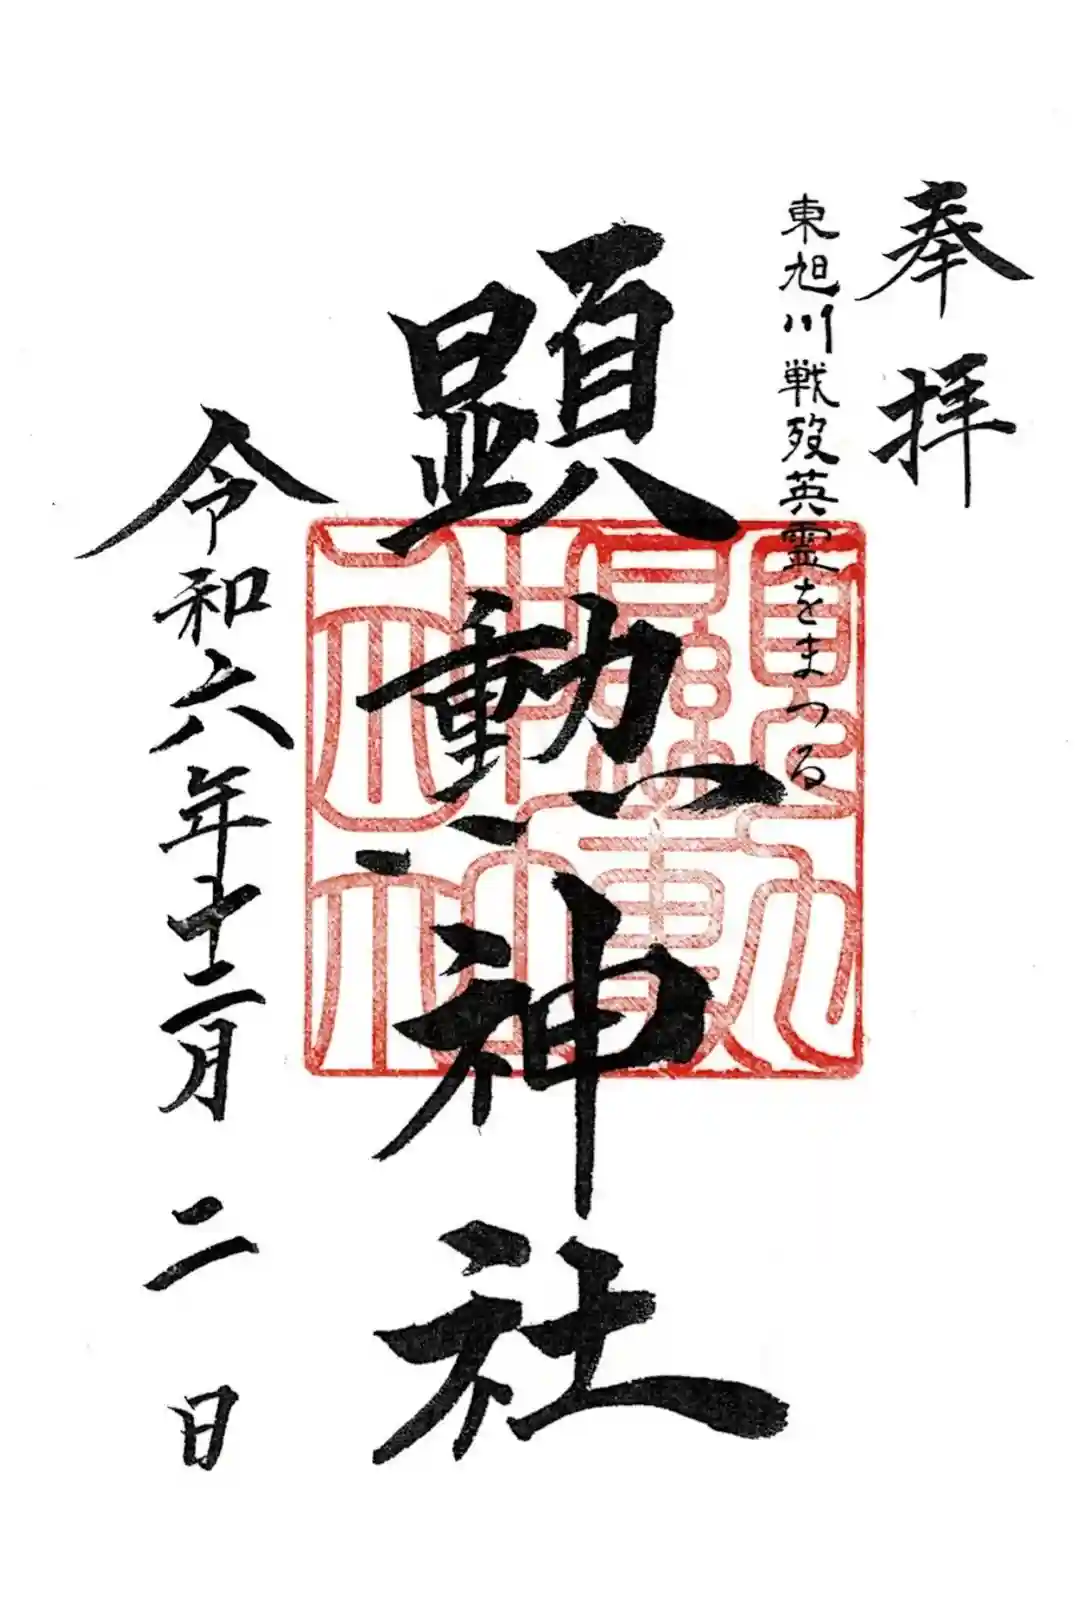 奉拝
東旭川戦歿英霊をまつる
顕勲神社
令和六年十二月二日